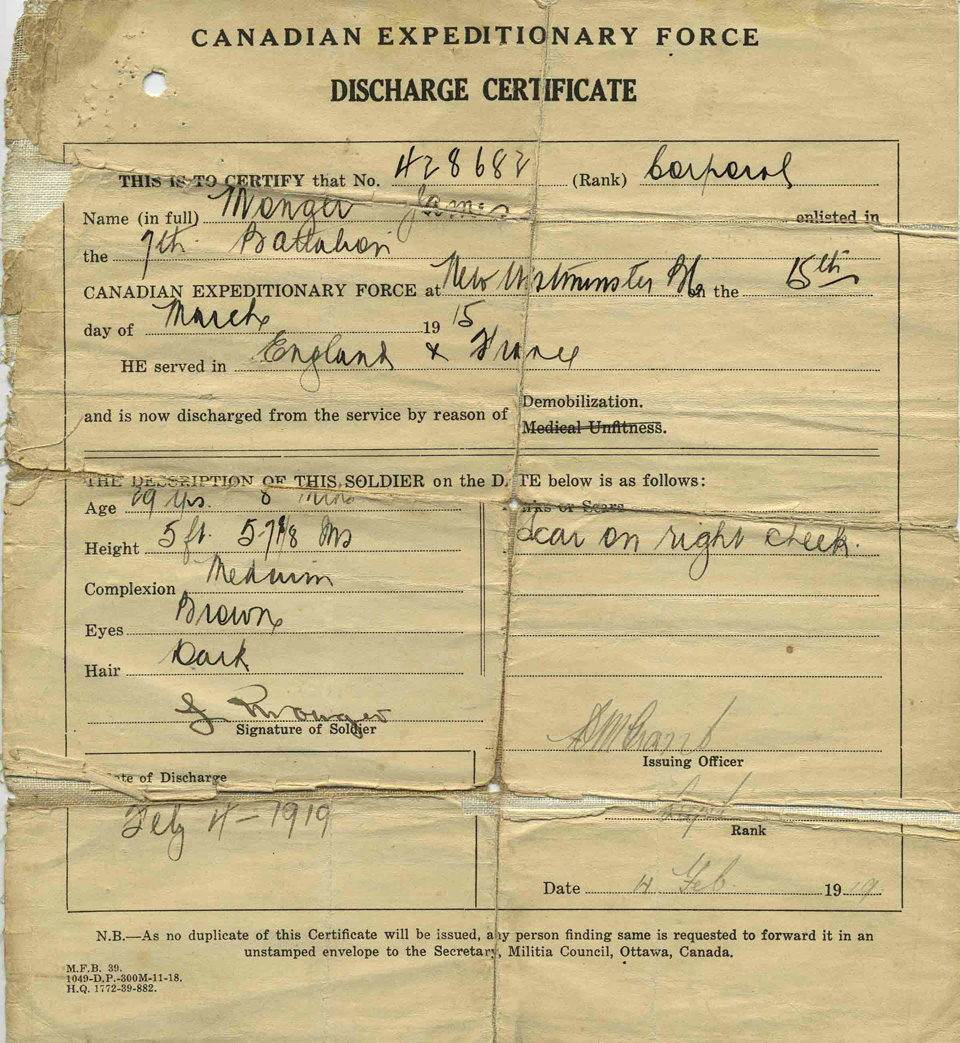 CANADIAN EXPEDITIONARY FORCE
DISCHARGE CERTIFICATE
THIS IS TO CERTIFY that No. 428682 (Rank) Corporal
Name (in full) Monger James enlisted in
the 7th Battalion
CANADIAN EXPEDITIONARY FORCE at New Westminster BC on the 15th
day of March 1915
HE served in England & France
and is now discharged from the service by reason of
Demobilization.
Medical Unfitness.
THE DESCRIPTION OF THIS SOLDIER on the DATE below is as follows:
Age 39 yrs. 8 mos
Marks or Scars
Height 5 ft.
Scar on right cheek.
Complexion Medium
Eyes Brown
Hair Dark
J Monger
Signature of Soldier
Issuing Officer
Date of Discharge
Feb 4 - 1919
Capt
Rank
Date 4 Feb. 1919
N.B.—As no duplicate of this Certificate will be issued, any person finding same is requested to forward it in an
unstamped envelope to the Secretary, Militia Council, Ottawa, Canada.
M.F.B. 39.
1049-D.P.-300M-11-18.
H.Q. 1772-39-882.